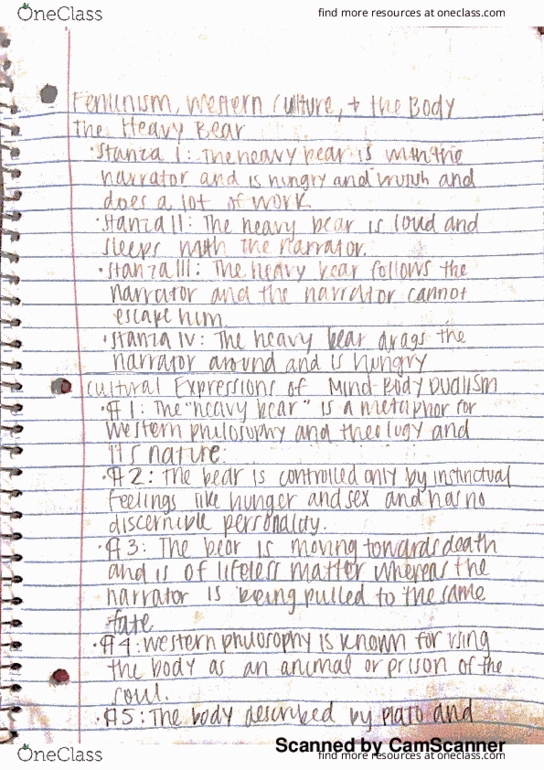 OneClass
find more resources at oneclass.com
Feminism, Western Culture, + the Body
The Heavy Bear
·Stanza I: The heavy bear is with the
narrator and is hungry and and
does a lot of work.
·Stanza II: The heavy bear is loud and
sleeps with the narrator.
·Stanza III: The heavy bear follows the
narrator and the narrator cannot
escape him.
·Stanza IV: The heavy bear drags the
narrator around and is hungry
Cultural Expressions of Mind-Body Dualism
·¶1: The "heavy bear" is a metaphor for
Western philosophy and theology and
it's nature.
·¶2: The bear is controlled only by instinctual
feelings like hunger and sex and has no
discernible personality.
·¶3: The bear is moving towards death
and is of lifeless matter whereas the
narrator is being pulled to the same
fate.
·¶4: Western philosophy is known for using
the body as an animal or prison of the
soul.
·¶5: The body described by Plato and
Scanned by CamScanner
OneClass
find more resources at oneclass.com